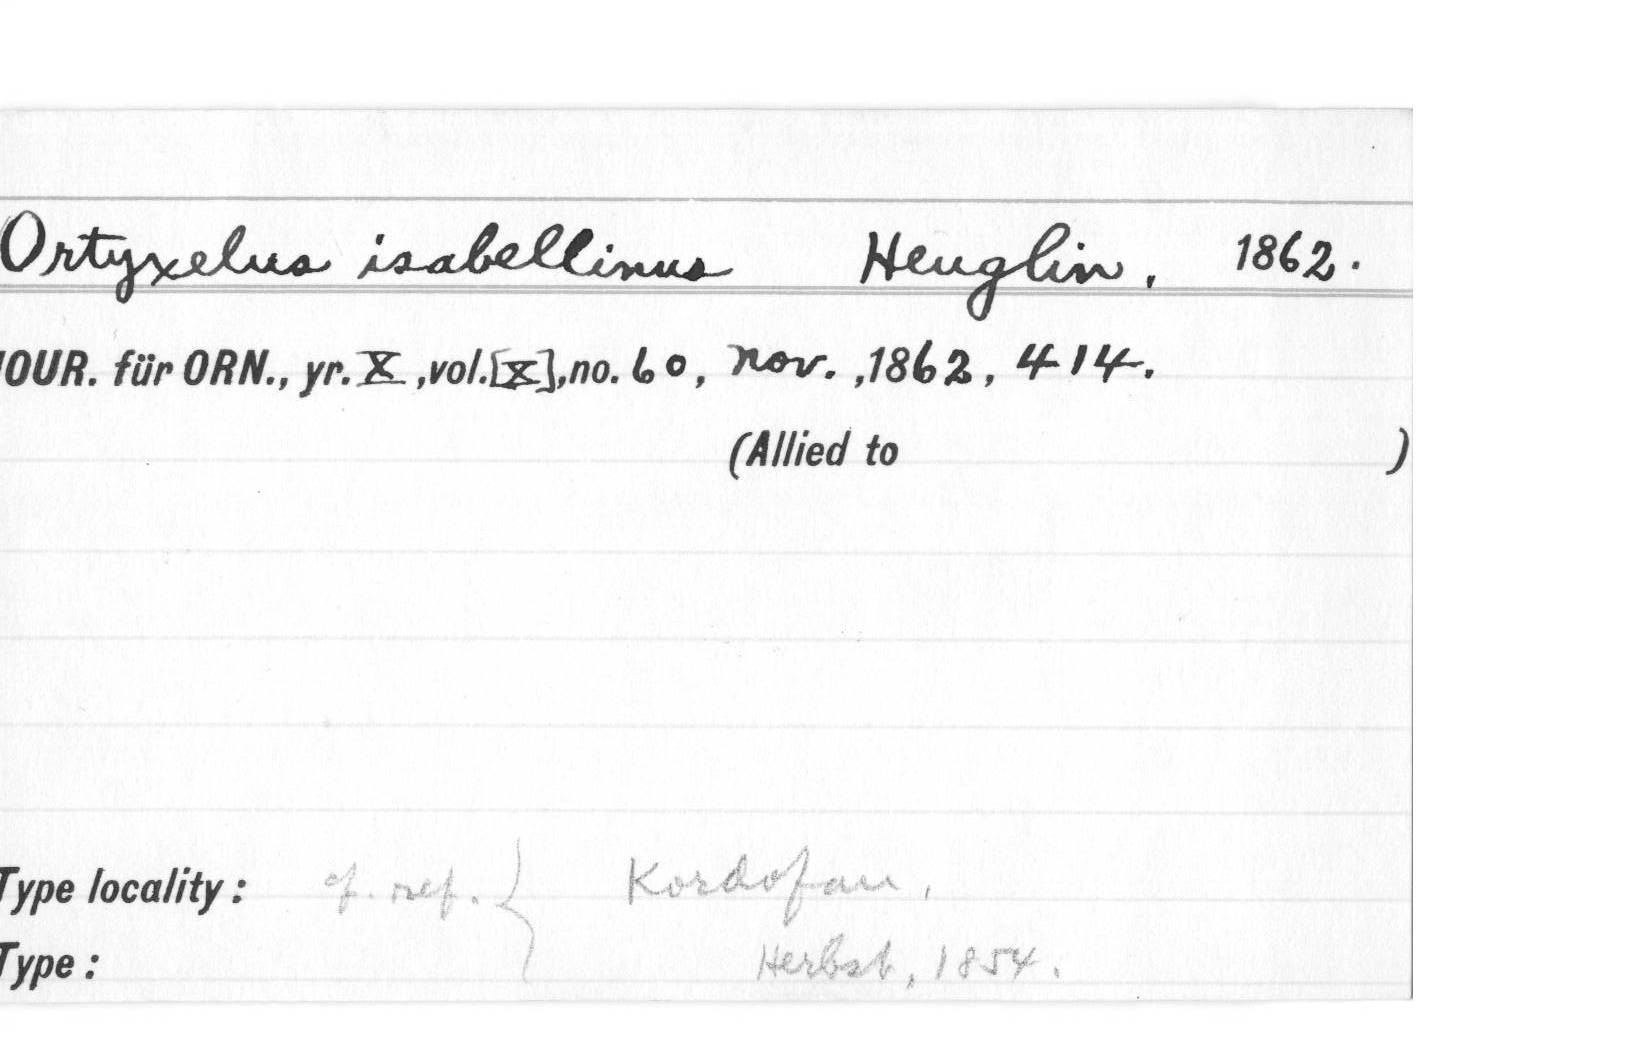 Ortyxelus isabellinus Heuglin, 1862.
JOUR. für ORN., yr. X, vol.[X], no. 60, Nov., 1862, 414.
(Allied to )
Type locality: cf. ref. { Kordofan,
Type: Herbst, 1854.